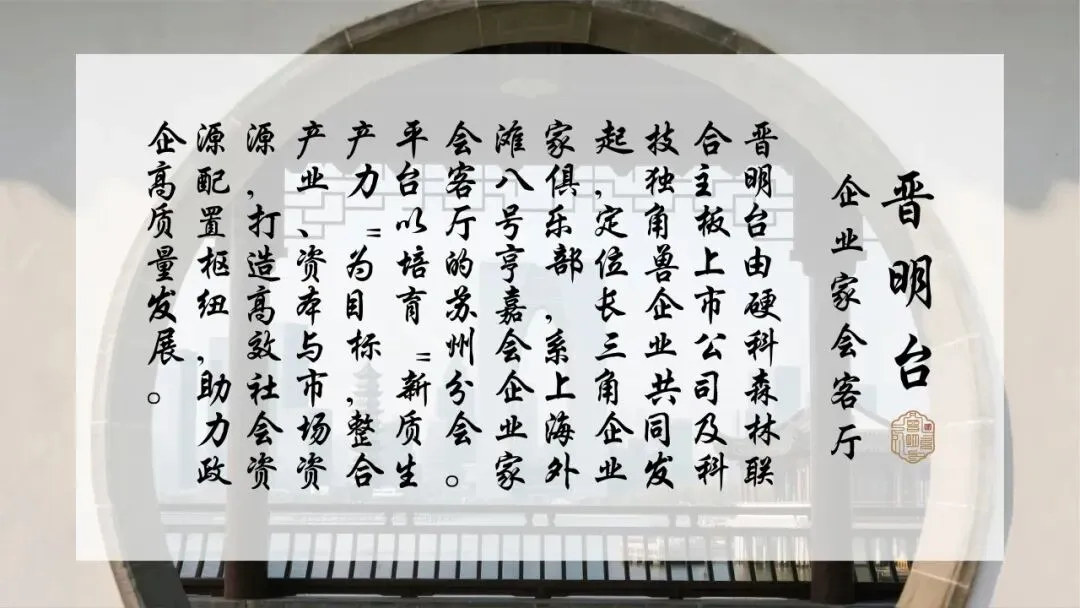 晋明台
企业家会客厅
晋明台由硬科森林联
合主板上市公司及科
技独角兽企业共同发
起，定位长三角企业
家俱乐部，系上海外
滩八号亨嘉会企业家
会客厅的苏州分会。
平台以培育"新质生
产力"为目标，整合
产业、资本与市场资
源，打造高效社会资
源配置枢纽，助力政
企高质量发展。